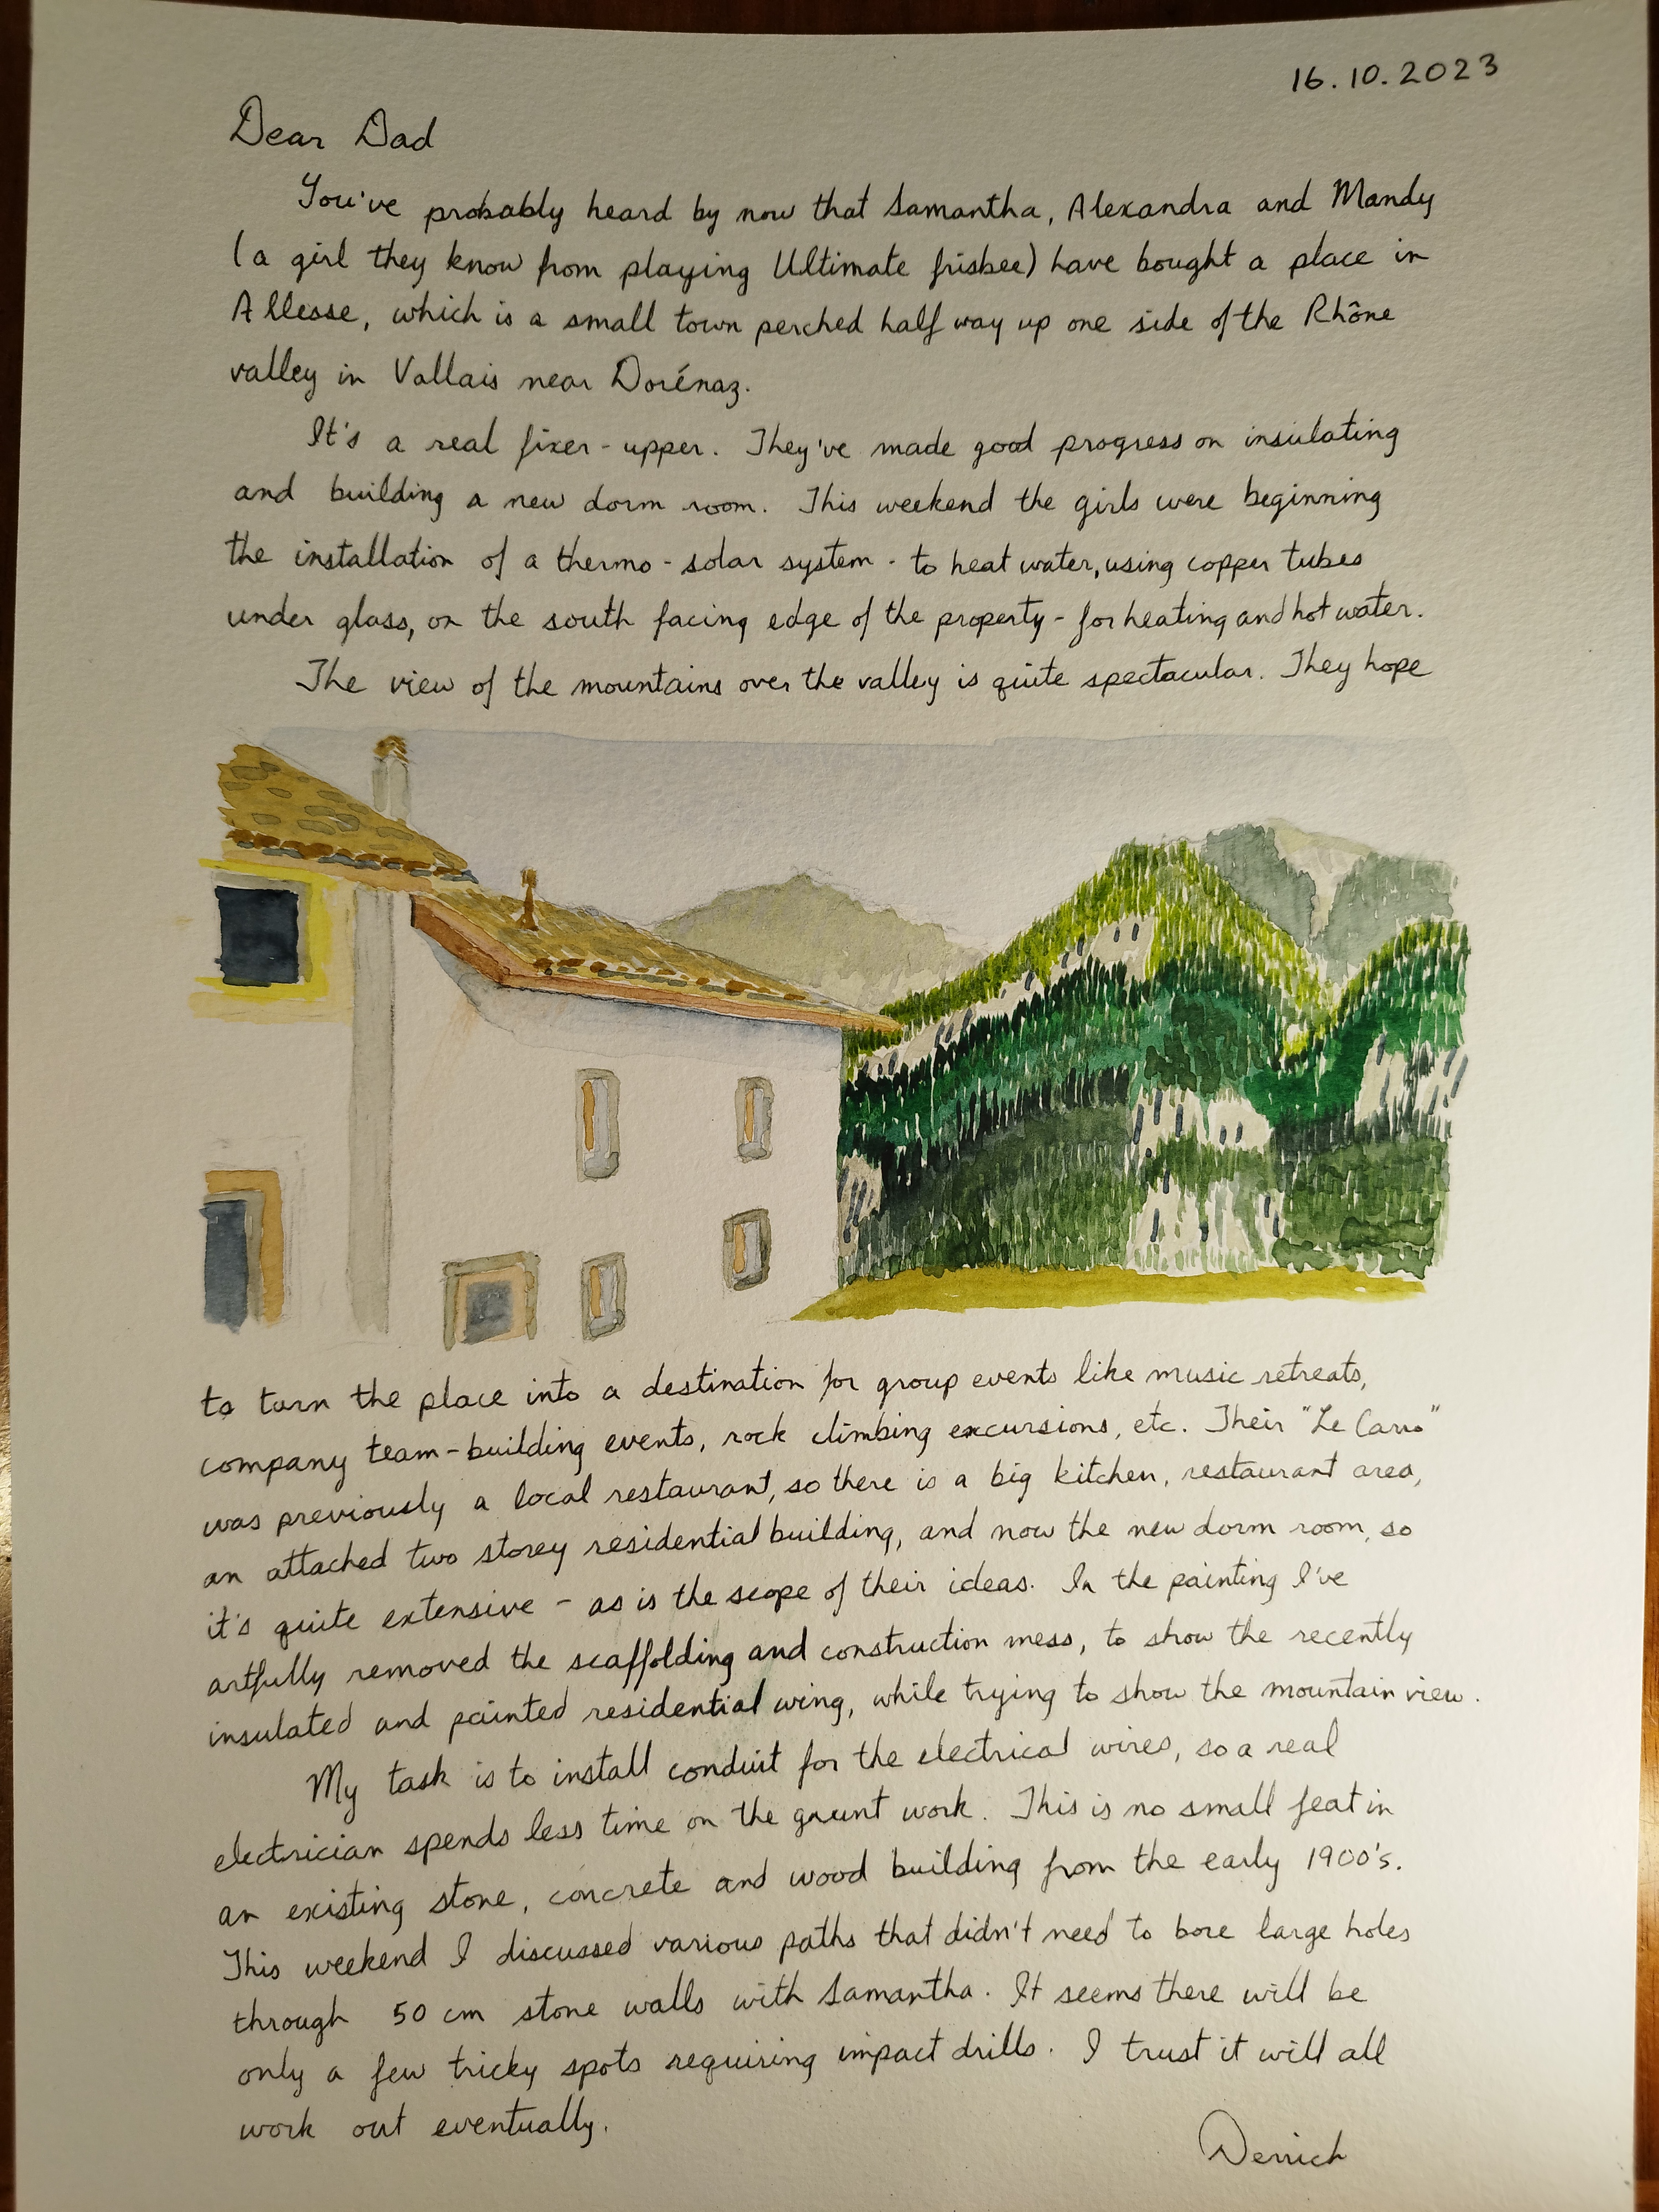 16.10.2023
Dear Dad
You've probably heard by now that Samantha, Alexandra and Mandy
(a girl they know from playing Ultimate frisbee) have bought a place in
Allesse, which is a small town perched half way up one side of the Rhône
valley in Vallais near Dorénaz.
It's a real fixer-upper. They've made good progress on insulating
and building a new dorm room. This weekend the girls were beginning
the installation of a thermo-solar system - to heat water, using copper tubes
under glass, on the south facing edge of the property - for heating and hot water.
The view of the mountains over the valley is quite spectacular. They hope
to turn the place into a destination for group events like music retreats,
company team-building events, rock climbing excursions, etc. Their "Le
was previously a local restaurant, so there is a big kitchen, restaurant area,
an attached two storey residential building, and now the new dorm room, so
it's quite extensive - as is the scope of their ideas. In the painting I've
artfully removed the scaffolding and construction mess, to show the recently
insulated and painted residential wing, while trying to show the mountain view.
My task is to install conduit for the electrical wires, so a real
electrician spends less time on the grunt work. This is no small feat in
an existing stone, concrete and wood building from the early 1900's.
This weekend I discussed various paths that didn't need to bore large holes
through 50 cm stone walls with Samantha. It seems there will be
only a few tricky spots requiring impact drills. I trust it will all
work out eventually.